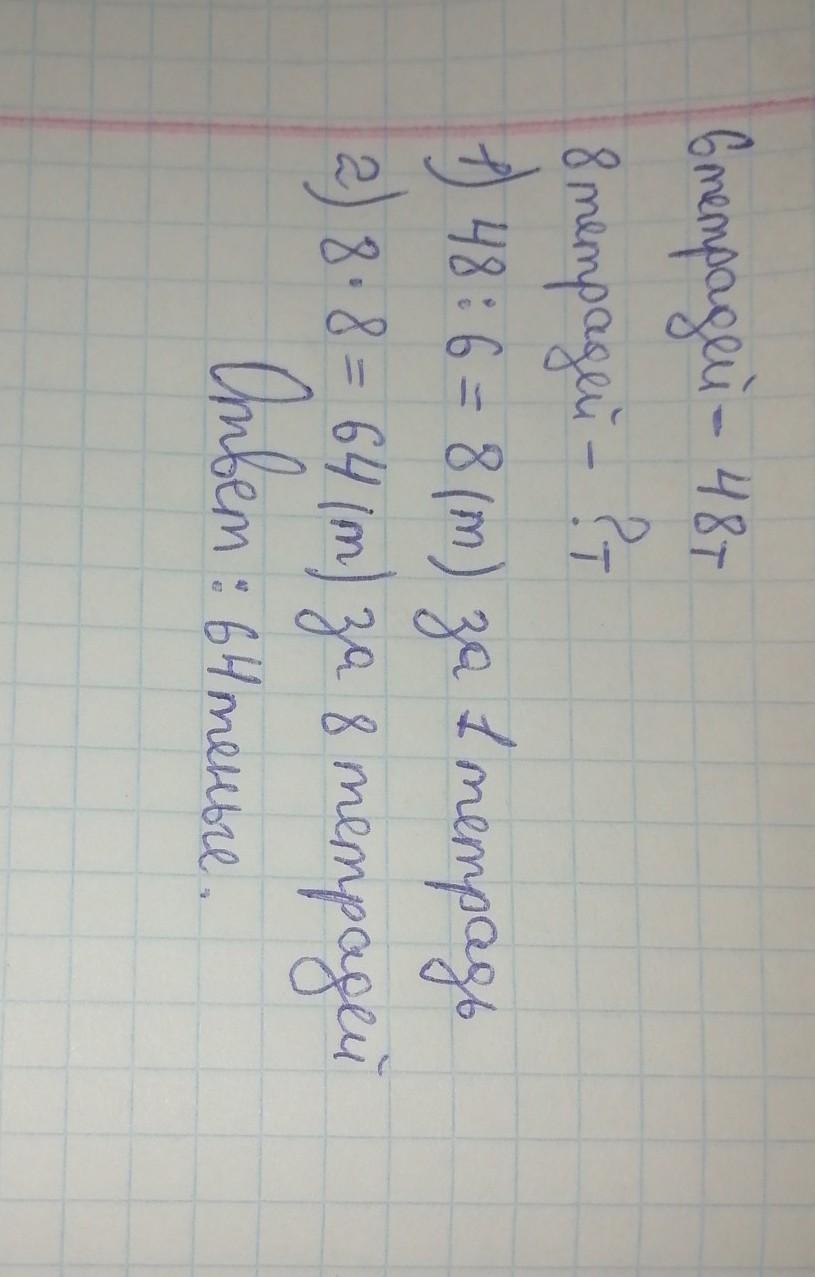 6 тетрадей - 48т
8 тетрадей - ?т
1) 48:6=8(т) за 1 тетрадь
2) 8·8=64(т) за 8 тетрадей
Ответ: 64 теньге.